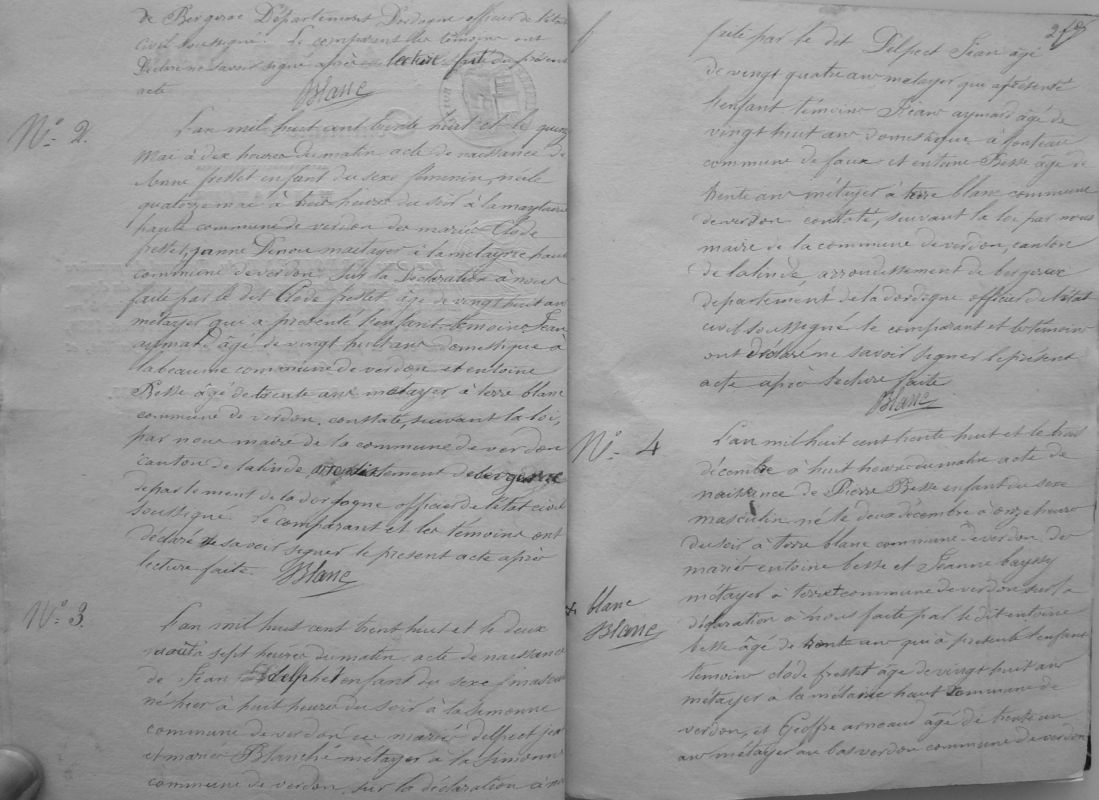 de Bergerac Département Dordogne officier de l'état
civil soussigné. Le comparant les témoins ont
Déclaré ne savoir signé après lecture fait du présent
acte
Blanc
N.° 2.
L'an mil huit cent trente huit et le quinze
Mai à dix heures du matin acte de naissance de
Anne frestet enfant du sexe féminin, née le
quatorze mai à huit heures du soir à la maytairie
haute commune de verdon des mariés Clode
frestet, jeanne Denoix maitayer à la métayrie haut
commune de verdon sur la Déclaration à nous
faite par le dit Clode frestet, âge de vingt huit an
métayer qui a présenté l'enfant témoins Jean
aymard âgé de vingt huit ans domestique à
labeaume commune de verdon et entoine
Besse âgé de trente ans métayer à terre blanc
commune de verdon. constaté, suivant la loi,
par nous maire de la commune de verdon
canton de lalinde, arrondistement de bergerac
departement de la dordogne officier de l'état civil
soussigné. Le comparant et les témoins ont
déclaré ne savoir signer le présent acte après
lecture faite.
Blanc
N.° 3.
L'an mil huit cent trent huit et le deux
août à sept heures du matin acte de naissance
de Jean Delphet enfant du sexe masculin
né hier à huit heures du soir à la Simonne
commune de verdon des mariés delpeot jean
et marie Blanché métayer à la simonne
commune de verdon, sur la déclaration à nous
faite par le det Delpect Jean âgé
de vingt quatre ans métayer qui a présenté
l'enfant témoins Jean aymard âgé de
vingt huit ans domestique à fonteau
commune de faux et entoine Besse âgé de
trente ans métayer à terre blanc commune
de verdon constaté, suivant la loi par nous
maire de la commune de verdon, canton
de lalinde arrondissement de bergerac
departement de la dordogne officier de l'état
civil soussigné le comparant et le témoins
ont déclaré ne savoir signer le présent
acte après lecture faite
Blanc
N.° 4
L'an mil huit cent trente huit et le trois
décembre à huit heures du matin acte de
naissance de Pierre Besse enfant du sexe
masculin né le deux décembre à onze heures
du soir à terre blanc commune de verdon. des
mariés entoine besse et Jeanne bayssy
métayer à terre x commune de verdon sur la
déclaration à nous faite par le dit entoine
besse âgé de trente ans qui à présenté l'enfant
temoins clode frestet âgé de vingt huit ans
métayer a la métairie haut commune de
verdon, et Geoffre arneaud âgé de trente un
ans métayer au bas verdon commune de verdon
x blanc
Blanc